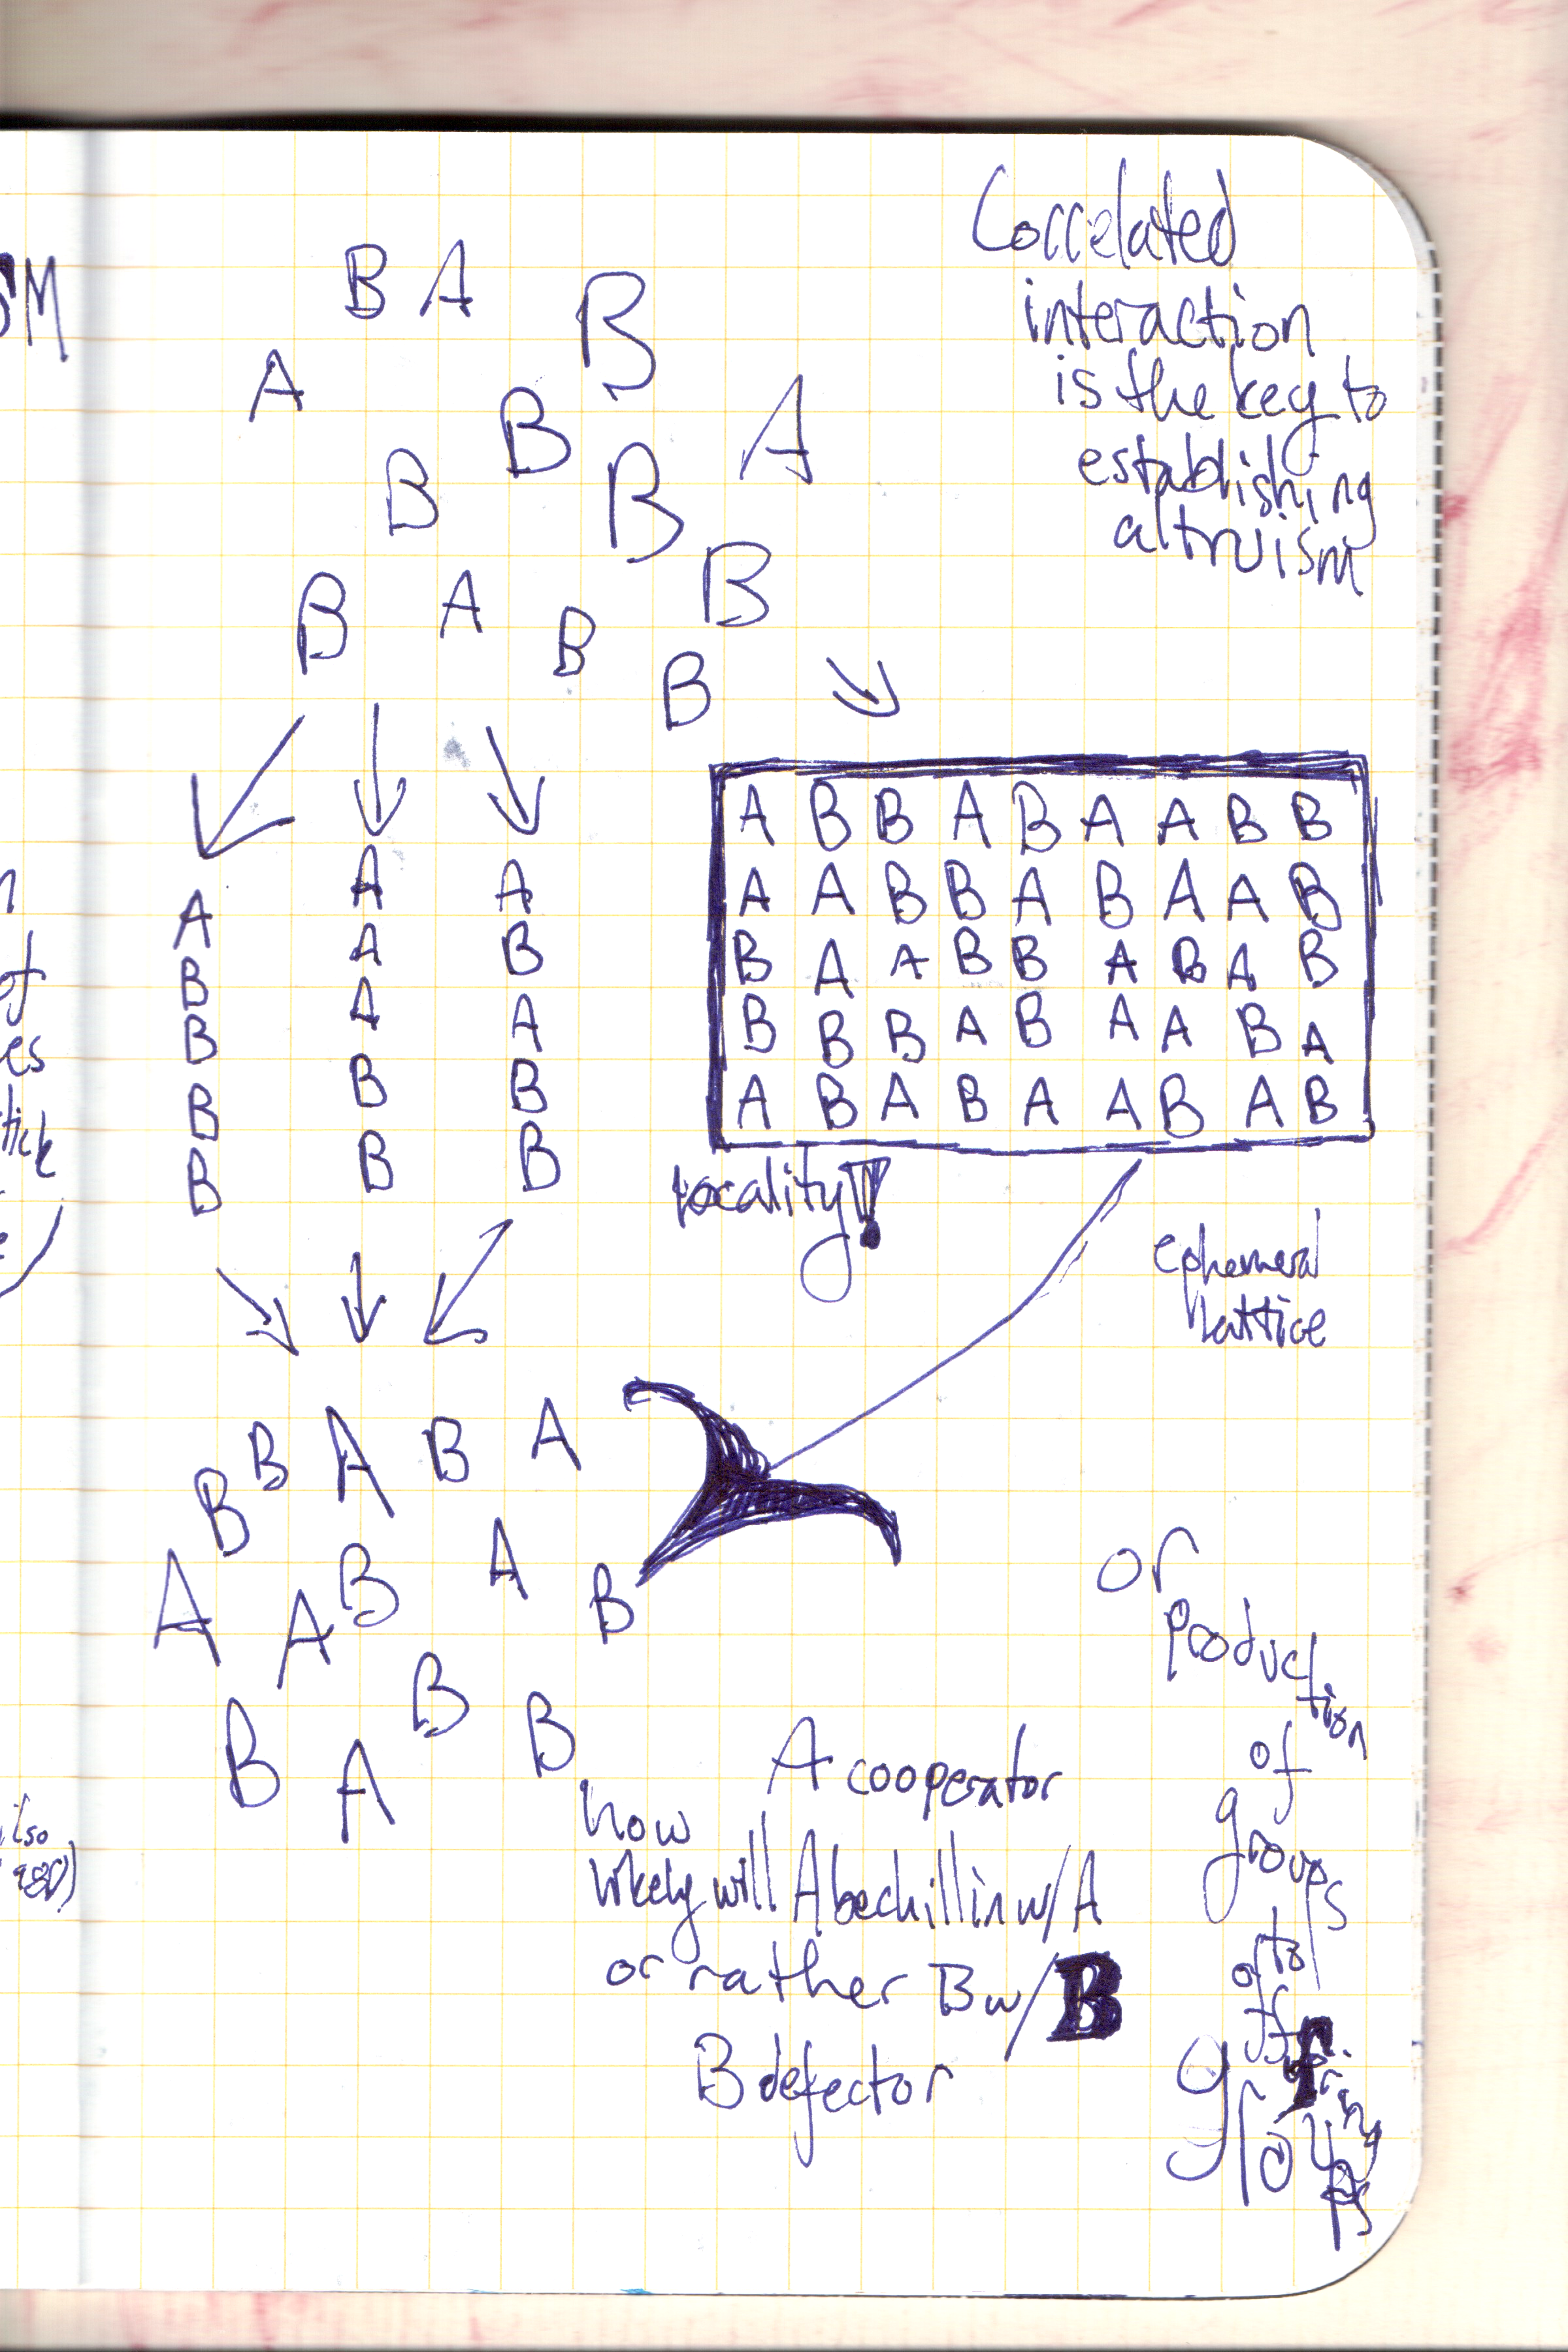 Correlated
interaction
is the key to
establishing
altruism
SM
B A
B
A
B
A
B
B
B
B
A
B
B
A B B A B A A B B
A A B B A B A A B
B A A B B A B A B
B B B A B A A B A
A B A B A A B A B
A
B
B
B
B
A
A
A
B
B
A
B
A
B
B
locality!
ephemeral
lattice
of
es
tick
B B A B A
A A B A B
B A B B
or
production
of
groups
to
offspring
groups
A cooperator
how
likely will A be chillin w/ A
or rather B w/ B
B defector